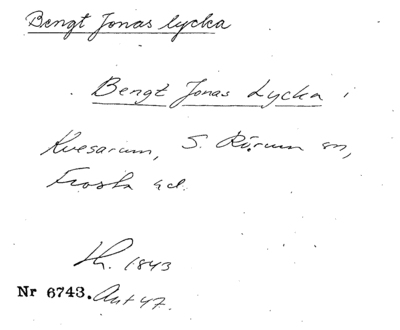 Bengt Jonas lycka
Bengt Jonas Lycka i
Kvesarum, S. Rörum sn,
Frosta hd.
Lh. 1843
Nr 6743. Ant 47.